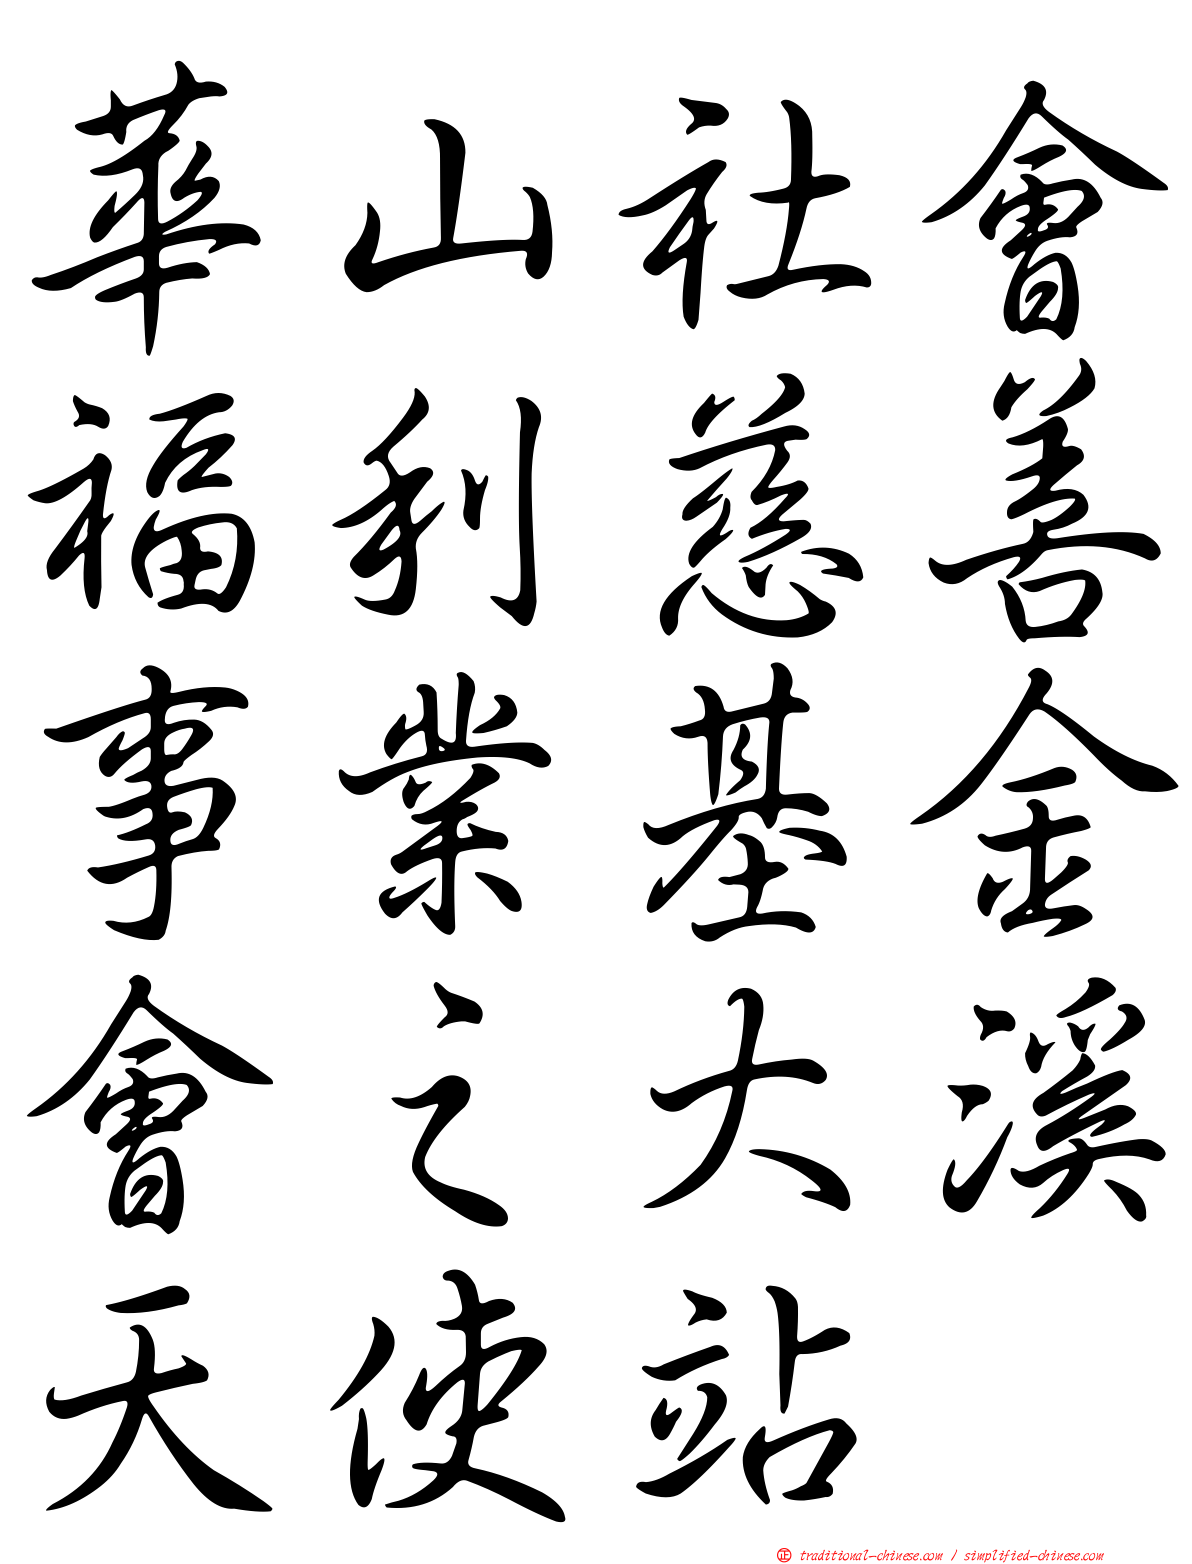 華山社會
福利慈善
事業基金
會之大溪
天使站
正 traditional-chinese.com / simplified-chinese.com